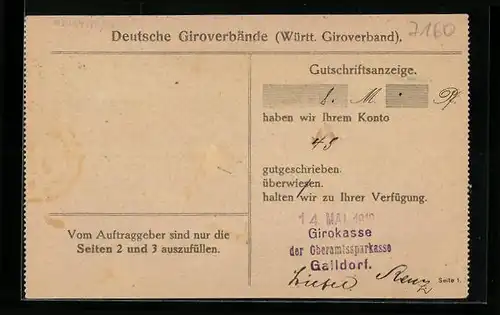 7160
Deutsche Giroverbände (Württ. Giroverband).
Gutschriftsanzeige.
8. M. Pf.
haben wir Ihrem Konto
45
gutgeschrieben.
überwiesen.
halten wir zu Ihrer Verfügung.
14. MAI 1919
Girokasse
der Oberamtssparkasse
Gaildorf.
Vom Auftraggeber sind nur die
Seiten 2 und 3 auszufüllen.
Seite 1.